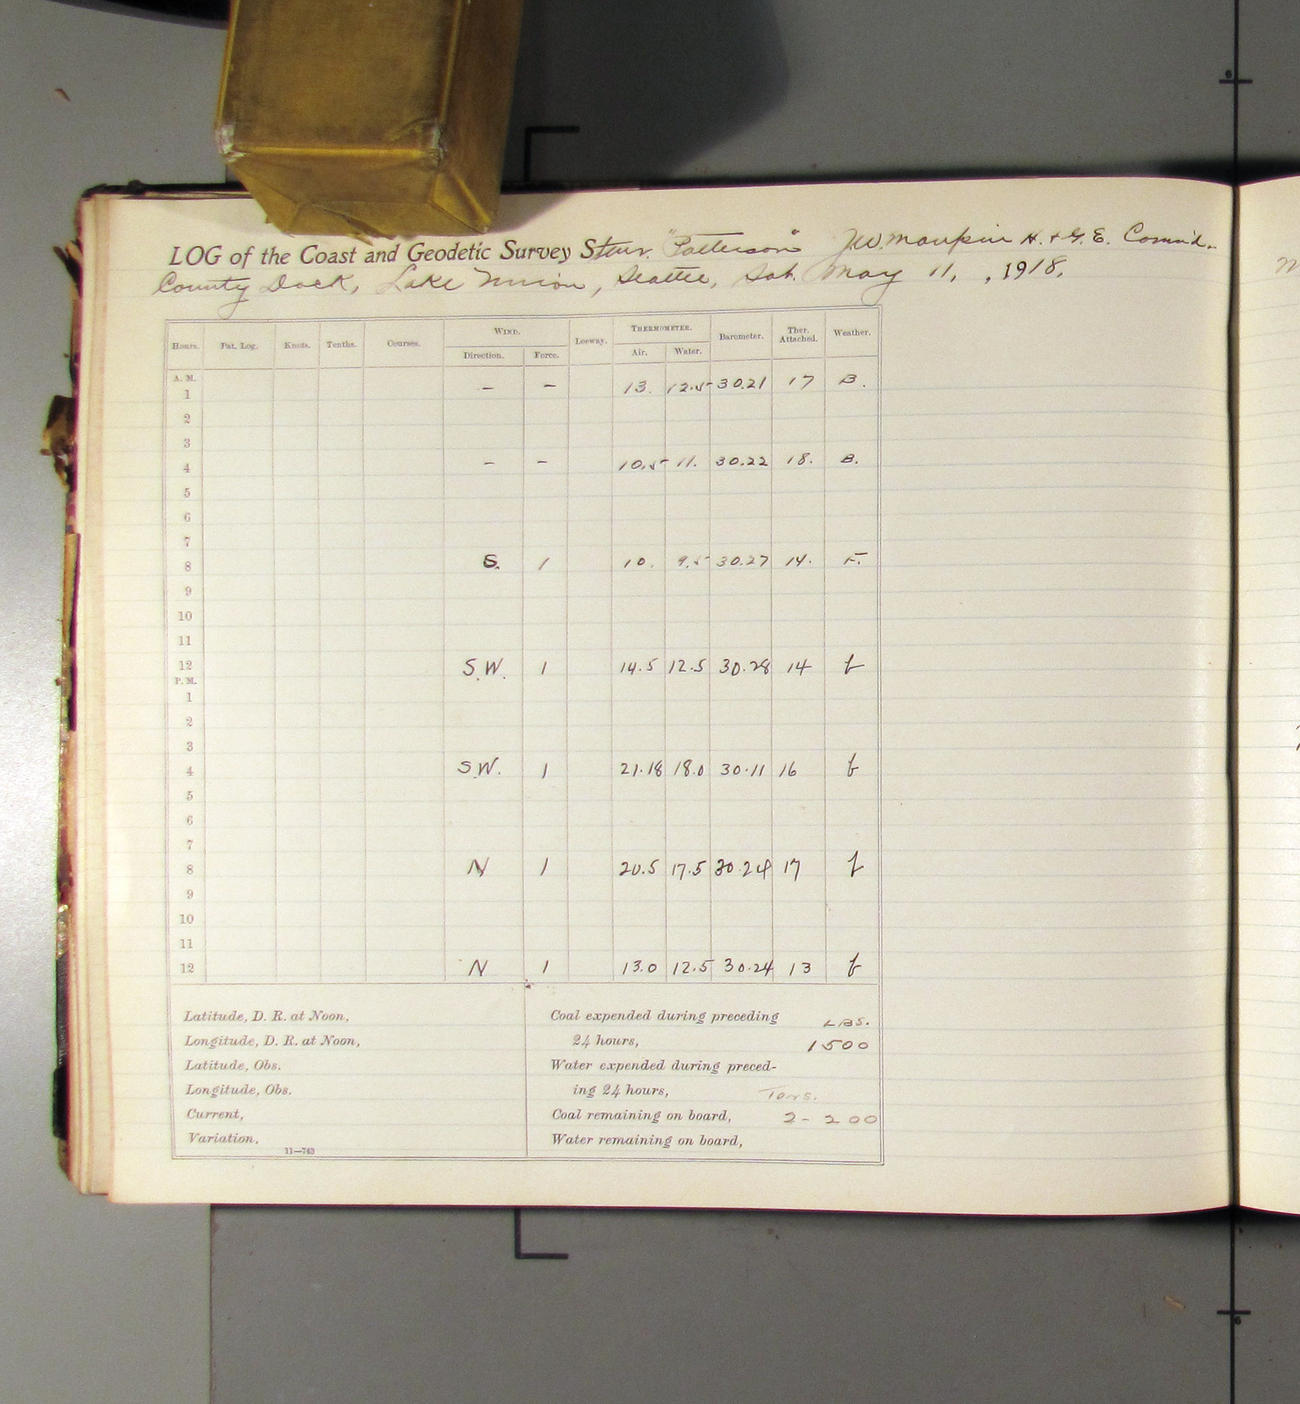 LOG of the Coast and Geodetic Survey Stmr. "Patterson" J.W. Maupin H. & G. E. Comm'd.
County Dock, Lake Union, Seattle, Sat. May 11, , 1918.
Hours. Pat. Log. Knots. Tenths. Courses. WIND. Direction. Force. Leeway. THERMOMETER. Air. Water. Barometer. Ther. Attached. Weather.
A. M.
1 – – 13. 12.5 30.21 17 B.
2
3
4 – – 10.5 11. 30.22 18. B.
5
6
7
8 S. 1 10. 9.5 30.27 14. F.
9
10
11
12 S.W. 1 14.5 12.5 30.28 14 f
P. M.
1
2
3
4 S.W. 1 21.18 18.0 30.11 16 f
5
6
7
8 N 1 20.5 17.5 30.24 17 f
9
10
11
12 N 1 13.0 12.5 30.24 13 f
Latitude, D. R. at Noon,
Longitude, D. R. at Noon,
Latitude, Obs.
Longitude, Obs.
Current,
Variation,
11—743
Coal expended during preceding LBS.
24 hours, 1500
Water expended during preced-
ing 24 hours, Tons.
Coal remaining on board, 2 - 200
Water remaining on board,
6
6